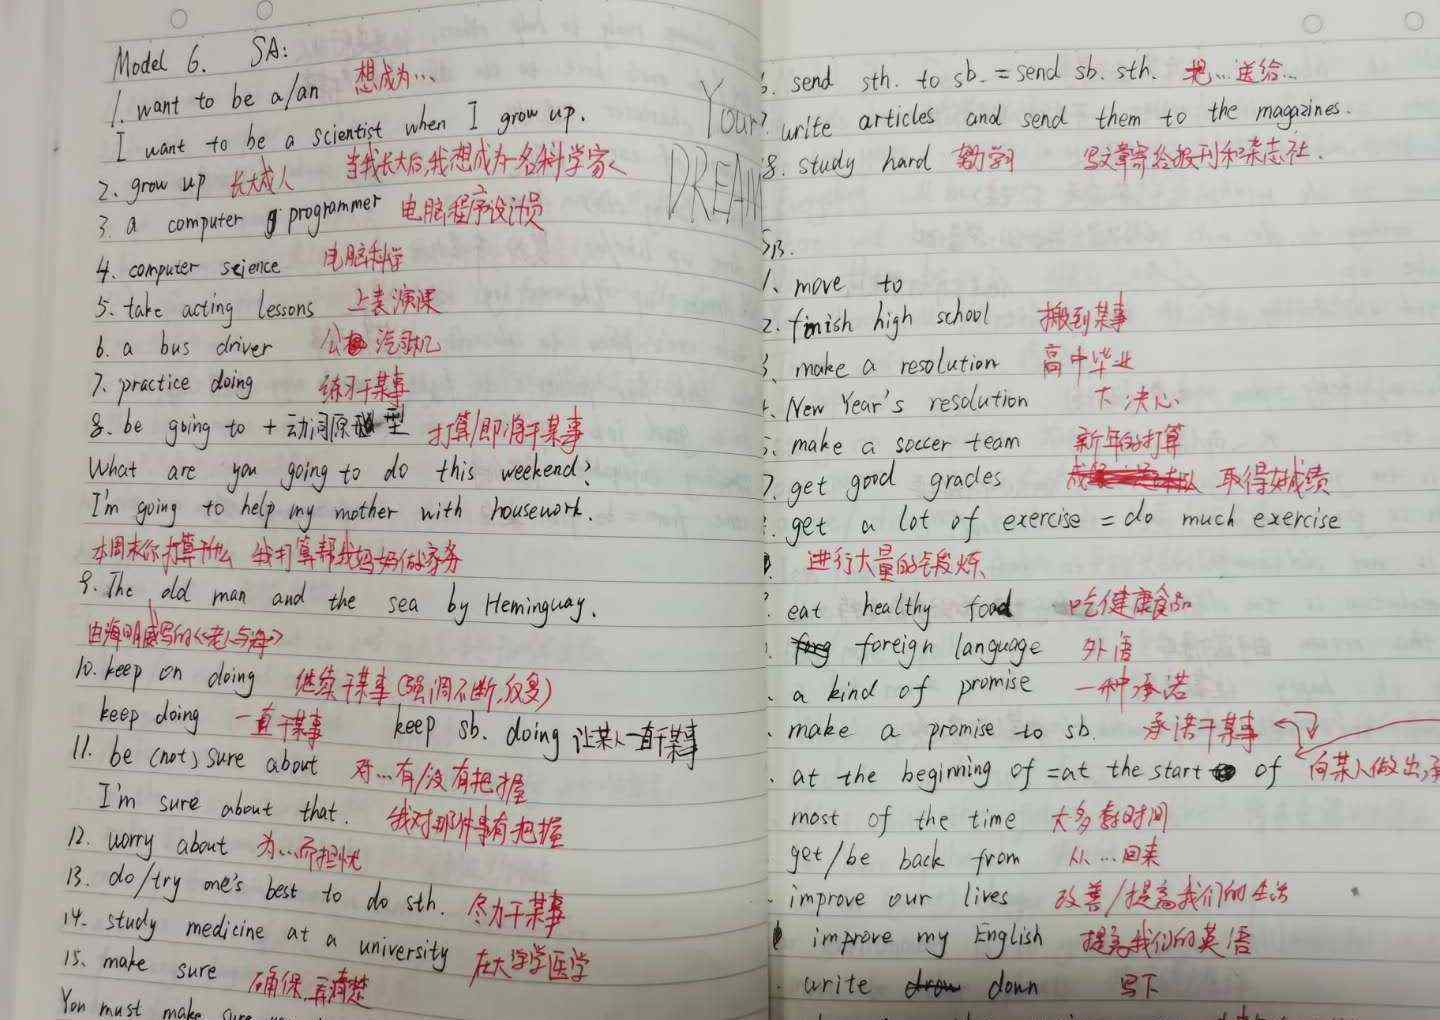 Model 6. SA:
1. want to be a/an 想成为…
I want to be a scientist when I grow up.
2. grow up 长大成人 当我长大后,我想成为一名科学家
3. a computer programmer 电脑程序设计员
4. computer science 电脑科学
5. take acting lessons 上表演课
6. a bus driver 公 汽司机
7. practice doing 练习干某事
8. be going to + 动词原 型 打算/即将干某事
What are you going to do this weekend?
I'm going to help my mother with housework.
本周末你打算干什么 我打算帮我妈妈做家务
9. The old man and the sea by Heminguay.
由海明威写的《老人与海》
10. keep on doing 继续干某事(强调不断,反复)
keep doing 一直干某事 keep sb. doing 让某人一直干某事
11. be (not) sure about 对…有/没有把握
I'm sure about that. 我对那件事有把握
12. worry about 为…而担忧
13. do/try one's best to do sth. 尽力干某事
14. study medicine at a university 在大学学医学
15. make sure 确保,弄清楚
You must make sure
Your
DREAM
6. send sth. to sb. = send sb. sth. 把…送给…
7. write articles and send them to the magazines.
8. study hard 勤学习 写文章寄给报刊和杂志社.
SB.
1. move to
2. finish high school 搬到某事
3. make a resolution 高中毕业
4. New Year's resolution 下决心
5. make a soccer team 新年的打算
7. get good grades 取得好成绩
get a lot of exercise = do much exercise
进行大量的锻炼
eat healthy food 吃健康食品
foreign language 外语
a kind of promise 一种承诺
make a promise to sb. 承诺干某事
at the beginning of = at the start of 向某人做出承
most of the time 大多数时间
get/be back from 从…回来
improve our lives 改善/提高我们的生活
improve my English 提高我们的英语
write down 写下